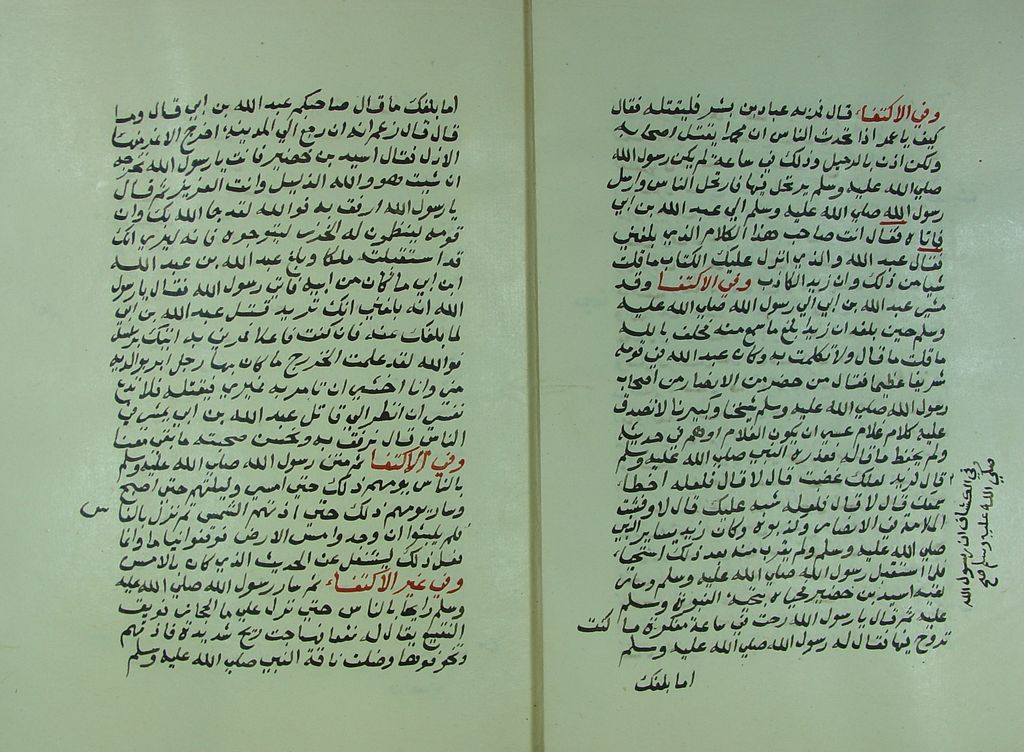 وفي الاكتفاء قال فمر به عباد بن بشر فليقتله فقال
كيف يا عمر اذا تحدث الناس ان محمدا يقتل اصحابه
ولكن اذن بالرحيل وذلك في ساعة لم يكن رسول الله
صلي الله عليه وسلم يرتحل فيها فارتحل الناس وارسل
رسول الله صلي الله عليه وسلم الي عبد الله بن ابي
فاتاه فقال انت صاحب هذا الكلام الذي بلغني
فقال عبد الله والذي انزل عليك الكتاب ما قلت
شيا من ذلك وان زيد الكاذب وفي الاكتفا وقد
مشي عبد الله بن ابي الي رسول الله صلي الله عليه
وسلم حين بلغه ان زيد بلغ ما سمع منه فحلف بالله
ما قلت ما قال ولا تكلمت به وكان عبد الله في قومه
شريفا عظيما فقال من حضر من الانصار من اصحاب
رسول الله صلي الله عليه وسلم شيخنا وكبيرنا لا تصدق
عليه كلام غلام عسي ان يكون الغلام اوهم في حديثه
ولم يحفظ ما قاله فعذره النبي صلي الله عليه وسلم
قال لزيد لعلك غضبت قال لا قال فلعله اخطا
سمعك قال لا قال فلعله شبه عليك قال لا وفشت
الملامة في الانصار وكذبوه وكان زيد يساير النبي
صلي الله عليه وسلم ولم يقرب منه بعد ذلك استحيا
فلما استقبل رسول الله صلي الله عليه وسلم وسار
لقيه اسيد بن حضير فحياه بتحية النبوة وسلم
عليه ثم قال يا رسول الله رحت في ساعة منكرة ما كنت
تروح فيها فقال له رسول الله صلي الله عليه وسلم
اما بلغك
في الكشاف ان رسول الله
صلي الله عليه وسلم
اما بلغك ما قال صاحبكم عبد الله بن ابي قال وما
قال قال زعم انه ان رجع الي المدينة اخرج الاعز منها
الاذل فقال اسيد بن حضير فانت يا رسول الله تخرجه
ان شيت فهو والله الذليل وانت العزيز ثم قال
يا رسول الله ارفق به فوالله لقد جا الله بك وان
قومه ينظمون له الخرز ليتوجوه فانه ليري انك
قد استقبلته ملكا وبلغ عبد الله بن عبد الله
ابن ابي ما كان من ابيه فاتي رسول الله فقال يا رسول
الله انه بلغني انك تريد قتل عبد الله بن ابي
لما بلغك عنه فان كنت فاعلا فمرني به اتيك براسه
فوالله لقد علمت الخزرج ما كان بها رجل ابر بوالديه
مني وانا اخشي ان تامر به غيري فيقتله فلا تدع
نفسي ان انظر الي قاتل عبد الله بن ابي يمشي في
الناس قال نرفق به ونحسن صحبته ما بقي معنا
وفي الاكتفا ثم مشي رسول الله صلي الله عليه وسلم
بالناس يومهم ذلك حتي امسي وليلتهم حتي اصبح
وسار يومهم ذلك حتي اذتهم الشمس ثم نزل بالناس
فلم يلبثوا ان وجدوا مس الارض فوقعوا نياما وانما
فعل ذلك ليشتغل عن الحديث الذي كان بالامس
وفي غير الاكتفاء ثم سار رسول الله صلي الله عليه
وسلم رايحا بالناس حتي نزل علي ما الحجاز فويق
النقيع يقال له نقعا فهاجت ريح شديدة فاذتهم
وتخوفوها وضلت ناقة النبي صلي الله عليه وسلم